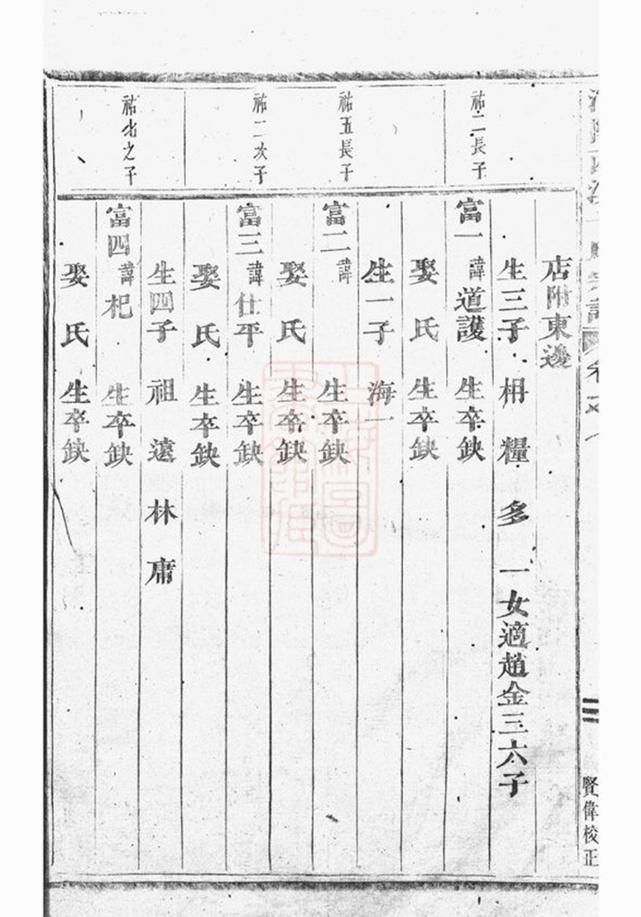 店附東邊
生三子 相 糧 多 一女適趙金三六子
祐二長子
富一 諱道護 生卒缺
娶氏 生卒缺
生一子 海一
祐五長子
富二 諱 生卒缺
娶氏 生卒缺
祐二次子
富三 諱仕平 生卒缺
娶氏 生卒缺
生四子 祖 遠 林 庸
之子
富四 諱杞 生卒缺
娶氏 生卒缺
賢偉校正